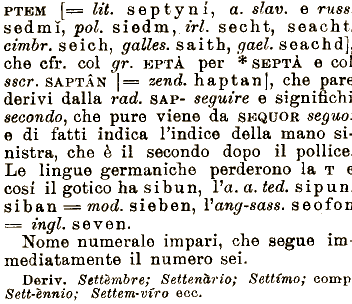 PTEM [= lit. septynì, a. slav. e russ.
sedmĭ, pol. siedm, irl. secht, seacht,
cimbr. seich, galles. saith, gael. seachd],
che cfr. col gr. EPTÀ per * SEPTÀ e col
sscr. SAPTÂN [= zend. haptan], che pare
derivi dalla rad. SAP- seguire e significhi
secondo, che pure viene da SEQUOR seguo:
e di fatti indica l'indice della mano si-
nistra, che è il secondo dopo il pollice.
Le lingue germaniche perderono la T e
cosí il gotico ha sibun, l'a. a. ted. sipun,
siban = mod. sieben, l'ang-sass. seofon
= ingl. seven.
Nome numerale impari, che segue im-
mediatamente il numero sei.
Deriv. Settèmbre; Settenàrio; Settímo; comp
Sett-ènnio; Settem-víro ecc.